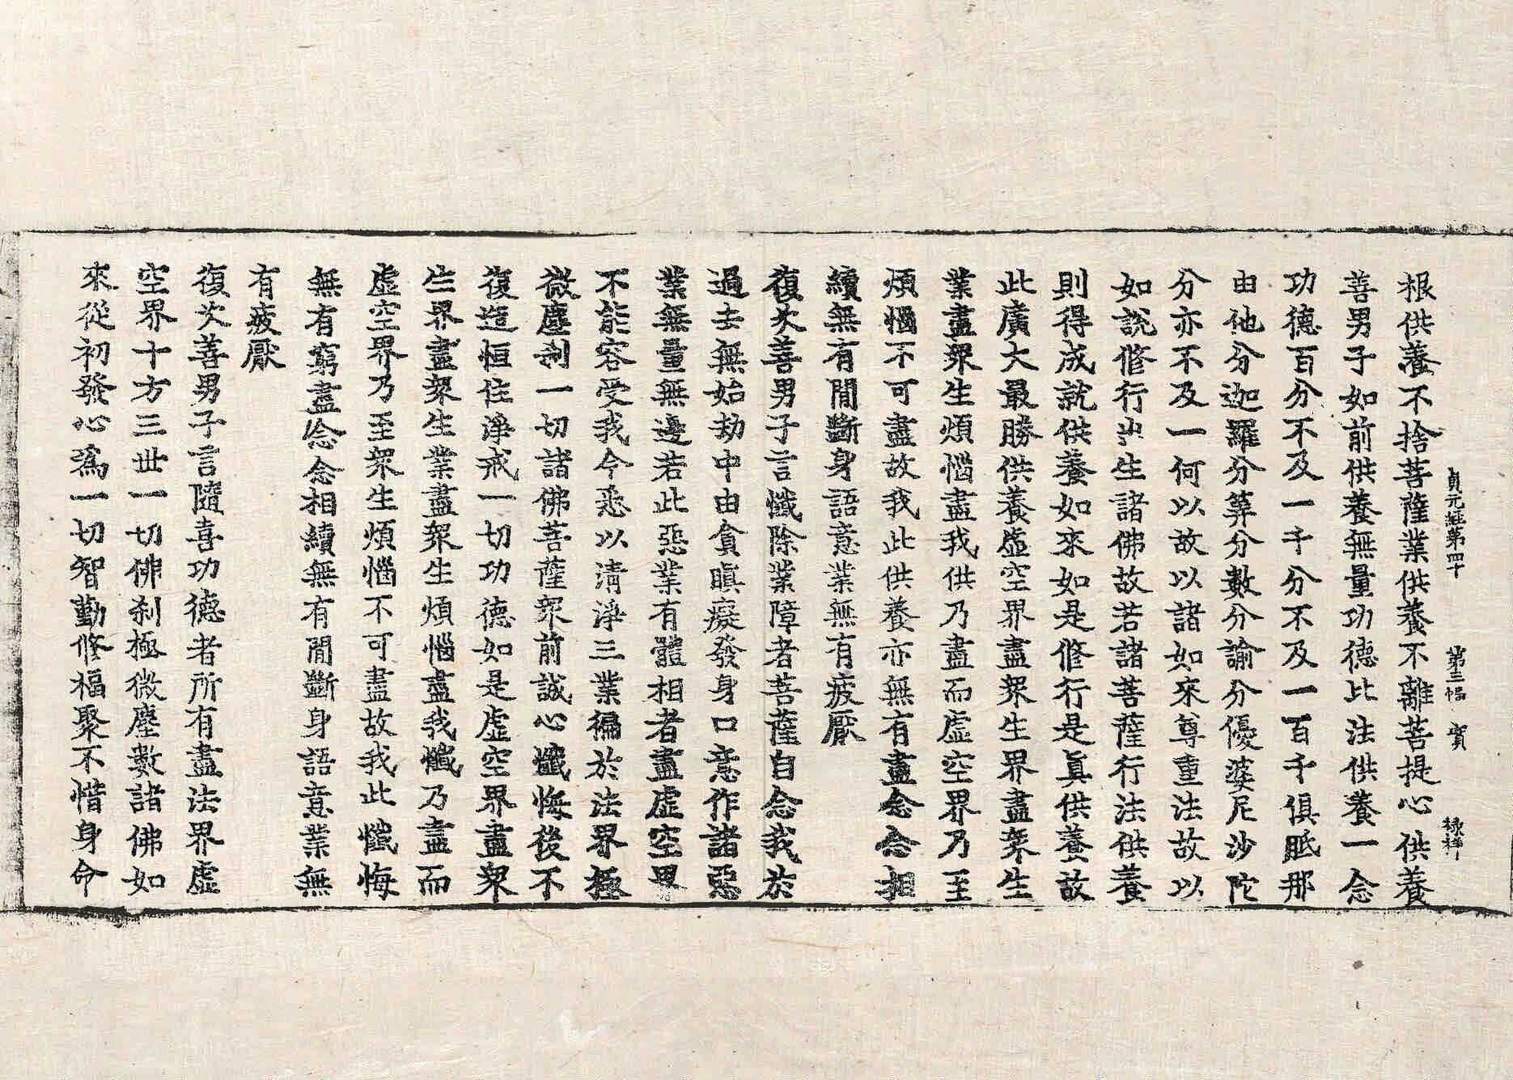 貞元經第四十 第三幅 賓 祿祥
根供養不捨菩薩業供養不離菩提心供養
善男子如前供養無量功德比法供養一念
功德百分不及一千分不及一百千俱胝那
由他分迦羅分筭分數分諭分優婆尼沙陀
分亦不及一何以故以諸如來尊重法故以
如說修行出生諸佛故若諸菩薩行法供養
則得成就供養如來如是修行是真供養故
此廣大最勝供養虛空界盡衆生界盡衆生
業盡衆生煩惱盡我供乃盡而虛空界乃至
煩惱不可盡故我此供養亦無有盡念念相
續無有間斷身語意業無有疲厭
復次善男子言懺除業障者菩薩自念我於
過去無始劫中由貪瞋癡發身口意作諸惡
業無量無邊若此惡業有體相者盡虛空界
不能容受我今悉以清淨三業徧於法界極
微塵剎一切諸佛菩薩衆前誠心懺悔後不
復造恒住淨戒一切功德如是虛空界盡衆
生界盡衆生業盡衆生煩惱盡我懺乃盡而
虛空界乃至衆生煩惱不可盡故我此懺悔
無有窮盡念念相續無有間斷身語意業無
有疲厭
復次善男子言隨喜功德者所有盡法界虛
空界十方三世一切佛刹極微塵數諸佛如
來從初發心爲一切智勤修福聚不惜身命